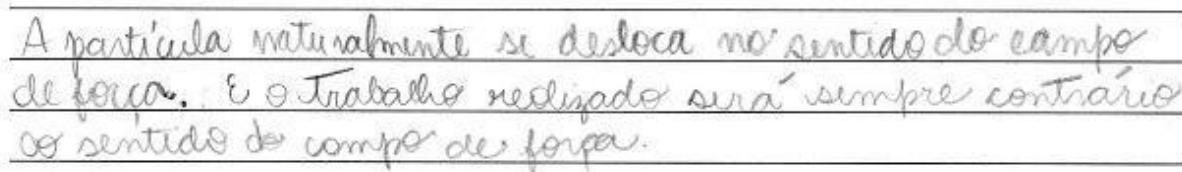 A partícula naturalmente se desloca no sentido do campo
de força. E o trabalho realizado será sempre contrário
ao sentido do campo de força.